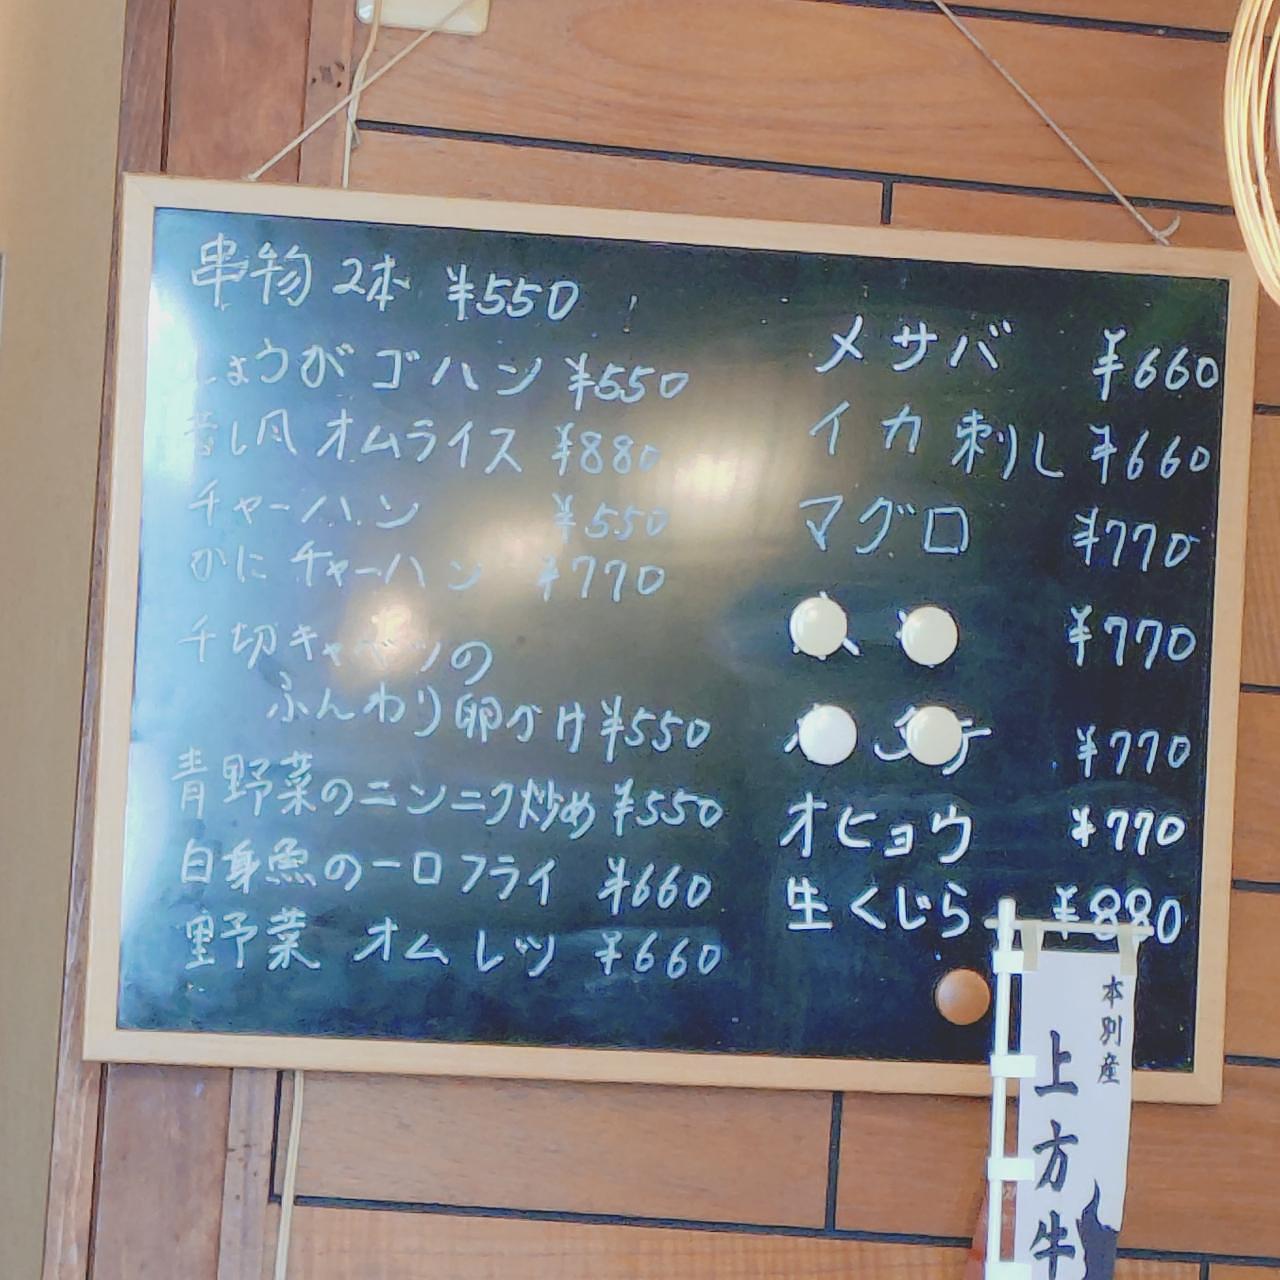 串物 2本 ¥550
しょうが ゴハン ¥550
昔し風 オムライス ¥880
チャーハン ¥550
かに チャーハン ¥770
千切キャベツの
ふんわり卵づけ ¥550
青野菜のニンニク炒め ¥550
白身魚の一口フライ ¥660
野菜 オムレツ ¥660
メサバ ¥660
イカ刺し ¥660
マグロ ¥770
¥770
¥770
オヒョウ ¥770
生くじら ¥880
本別産
上方牛